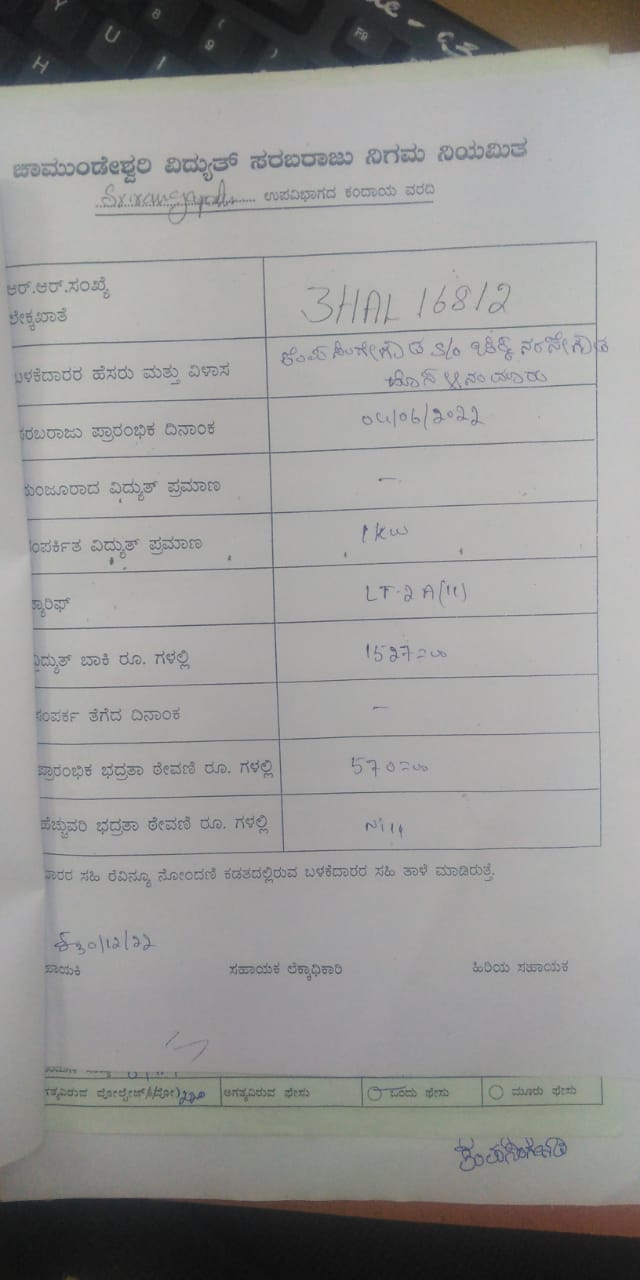 ಚಾಮುಂಡೇಶ್ವರಿ ವಿದ್ಯುತ್ ಸರಬರಾಜು ನಿಗಮ ನಿಯಮಿತ
ಉಪವಿಭಾಗದ ಕಂದಾಯ ವರದಿ
ಆರ್.ಆರ್.ಸಂಖ್ಯೆ
ಲೆಕ್ಕಖಾತೆ
3HAL 16812
ಬಳಕೆದಾರರ ಹೆಸರು ಮತ್ತು ವಿಳಾಸ
ಸರಬರಾಜು ಪ್ರಾರಂಭಿಕ ದಿನಾಂಕ 04/06/2022
ಮಂಜೂರಾದ ವಿದ್ಯುತ್ ಪ್ರಮಾಣ -
ಸಂಪರ್ಕಿತ ವಿದ್ಯುತ್ ಪ್ರಮಾಣ 1 kw
ಟ್ಯಾರಿಫ್ LT-2 A(ii)
ವಿದ್ಯುತ್ ಬಾಕಿ ರೂ. ಗಳಲ್ಲಿ 1527=00
ಸಂಪರ್ಕ ತೆಗೆದ ದಿನಾಂಕ -
ಪ್ರಾರಂಭಿಕ ಭದ್ರತಾ ಠೇವಣಿ ರೂ. ಗಳಲ್ಲಿ 570=00
ಹೆಚ್ಚುವರಿ ಭದ್ರತಾ ಠೇವಣಿ ರೂ. ಗಳಲ್ಲಿ Nill
ದಾರರ ಸಹಿ ರೆವಿನ್ಯೂ ನೋಂದಣಿ ಕಡತದಲ್ಲಿರುವ ಬಳಕೆದಾರರ ಸಹಿ ತಾಳೆ ಮಾಡಿರುತ್ತೆ.
30/12/22
ಸಹಾಯಕ ಲೆಕ್ಕಾಧಿಕಾರಿ ಹಿರಿಯ ಸಹಾಯಕ
ಅಗತ್ಯವಿರುವ ಫೇಸು ಒಂದು ಫೇಸು ಮೂರು ಫೇಸು